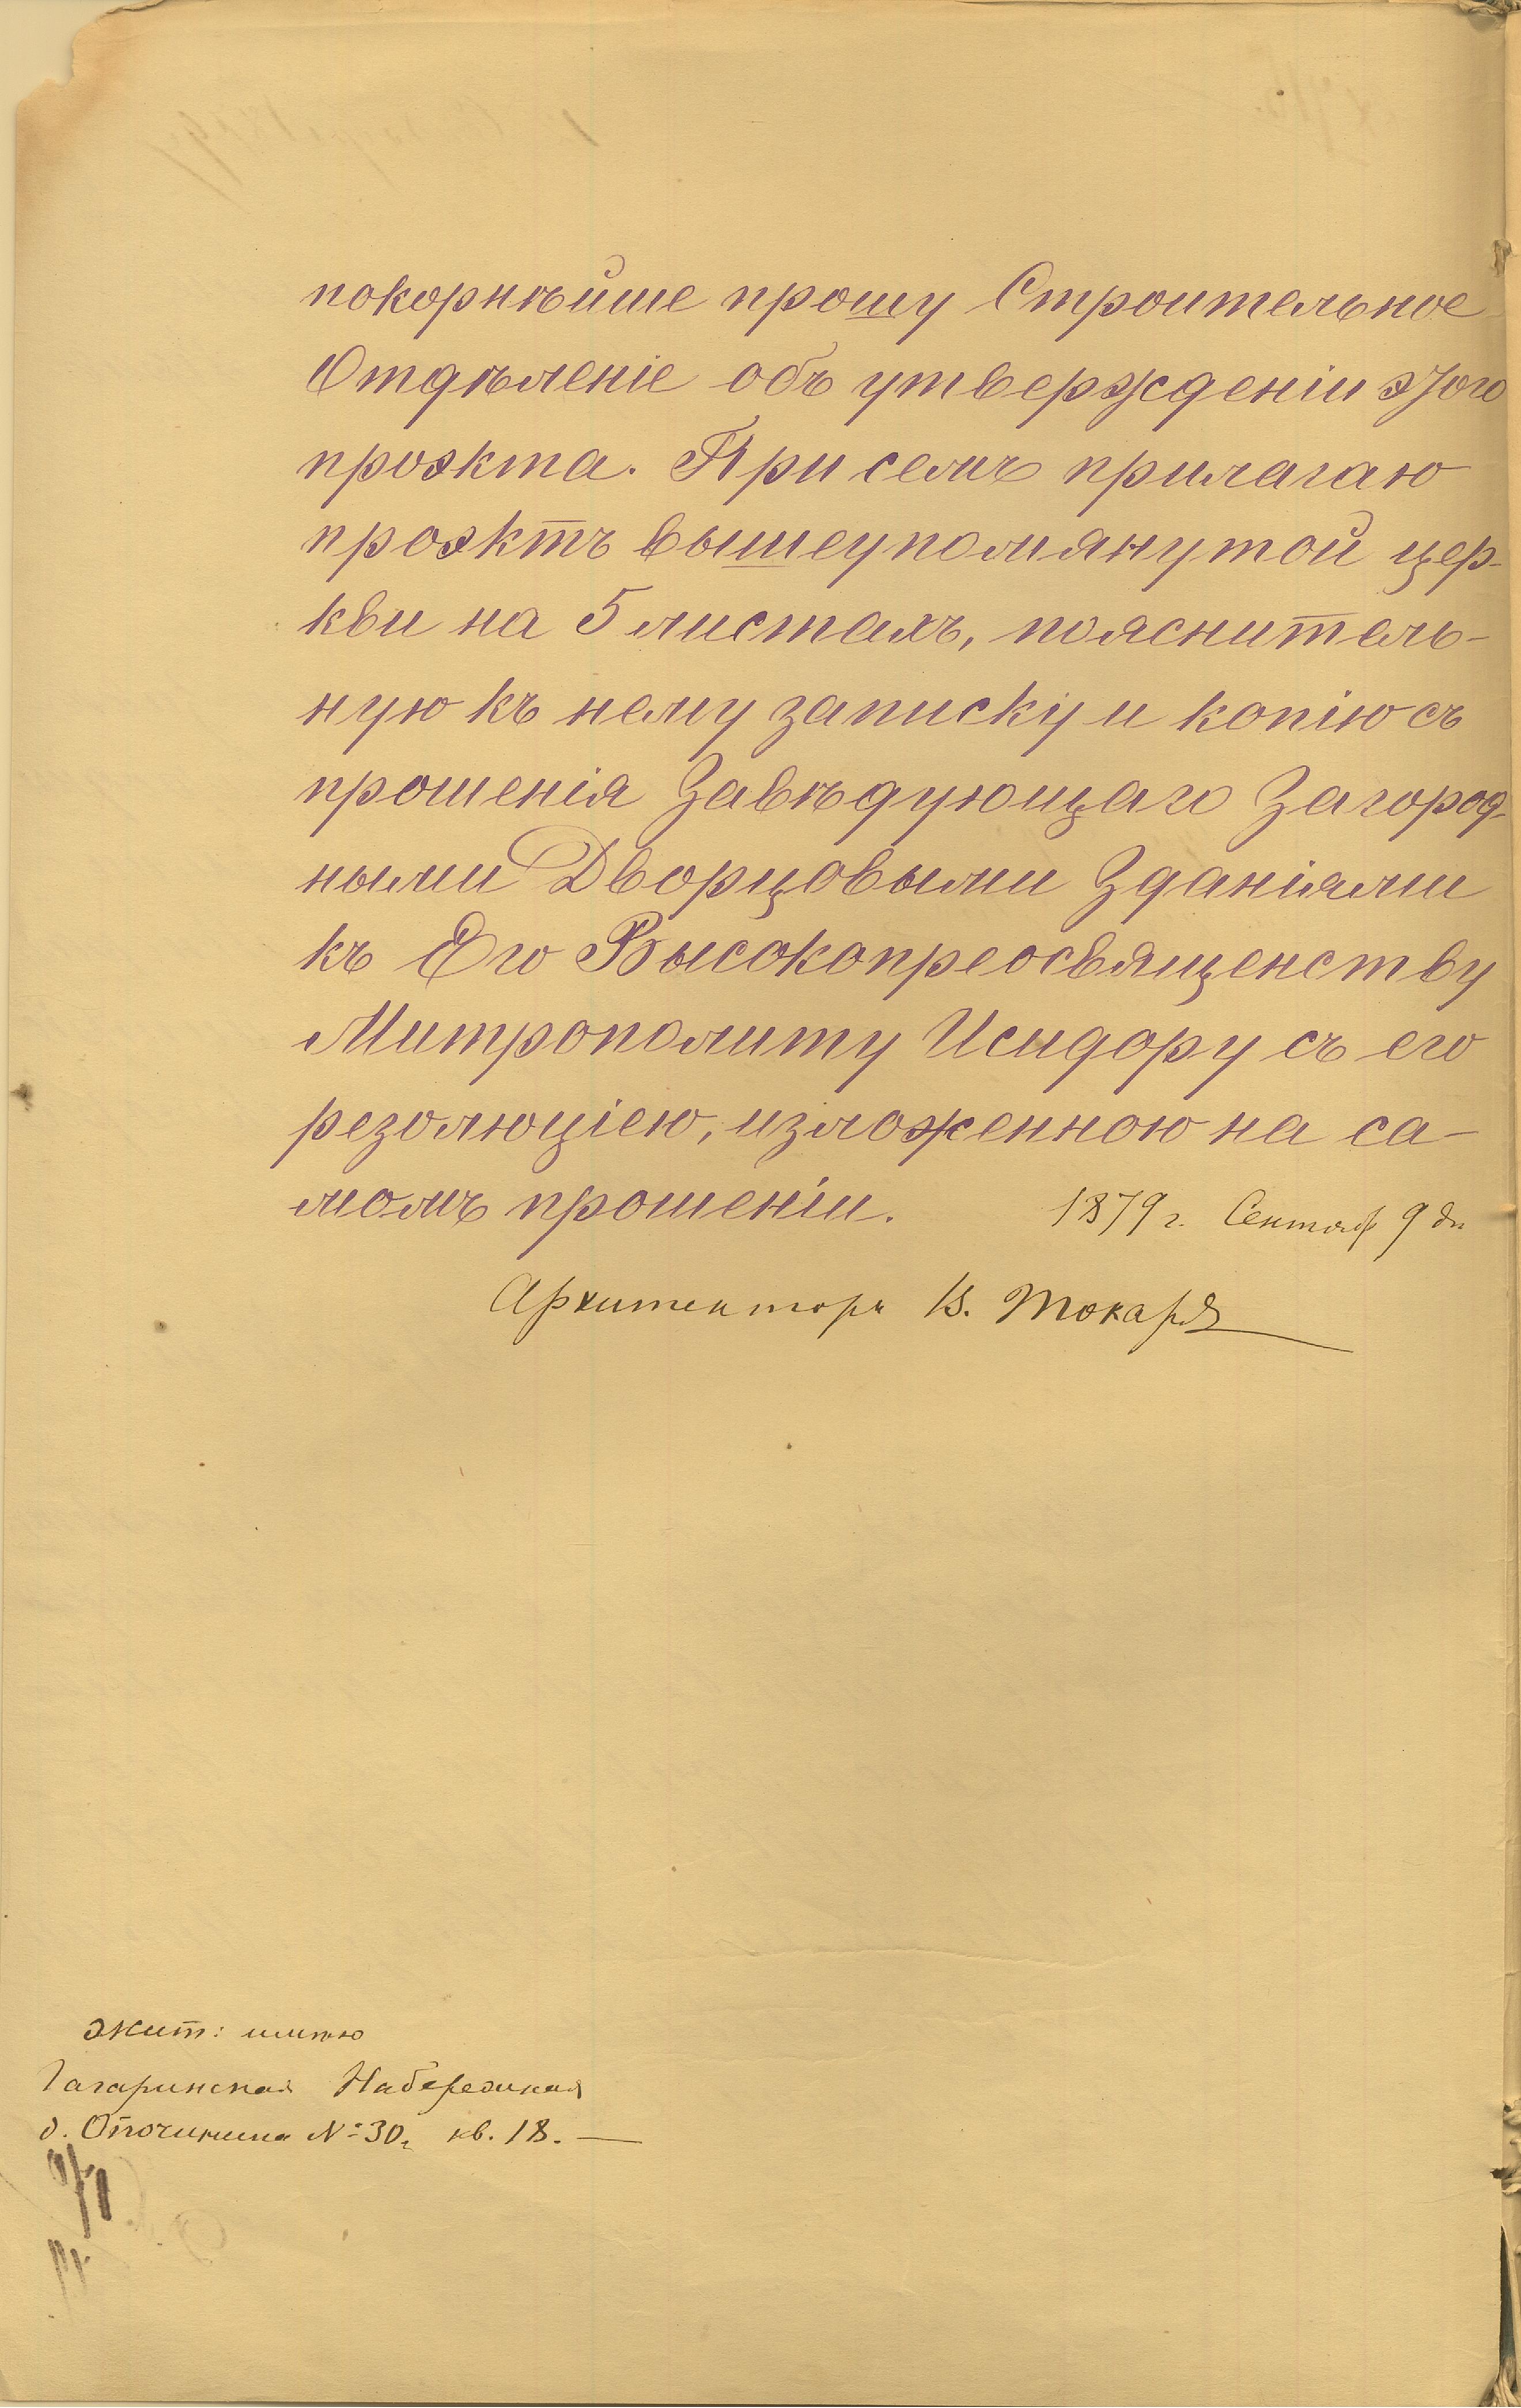 покорнѣйше прошу Строительное
Отдѣленіе объ утвержденіи этого
проэкта. При семъ прилагаю
проэктъ вышеупомянутой цер-
кви на 5 листахъ, пояснитель-
ную къ нему записку и копію съ
прошенія Завѣдующаго Загород-
ными Дворцовыми Зданіями
къ Его Высокопреосвященству
Митрополиту Исидору съ его
резолюціею, изложенною на са-
момъ прошеніи.
1879 г. Сентяб 9 дн
Архитекторъ В. Токарев
жит: имѣю
Гагаринская Набережная
д. Опочинина № 30, кв. 18. —